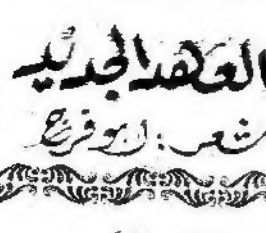 العهد الجديد
شعر: ابو فرج